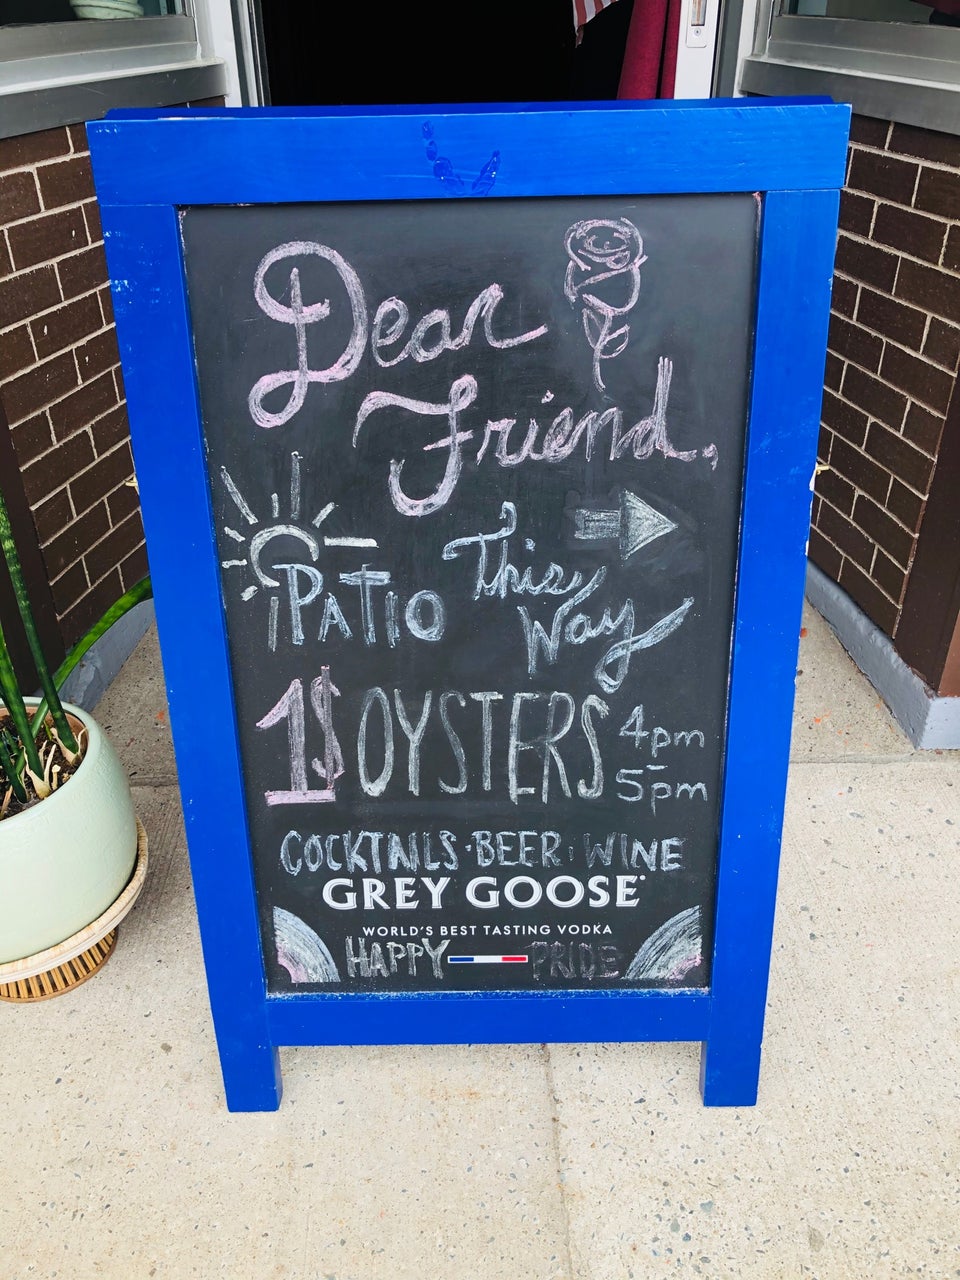 Dear
Friend,
PATIO This
Way
1$ OYSTERS 4pm
-
5pm
COCKTAILS · BEER · WINE
GREY GOOSE
WORLD'S BEST TASTING VODKA
HAPPY PRIDE